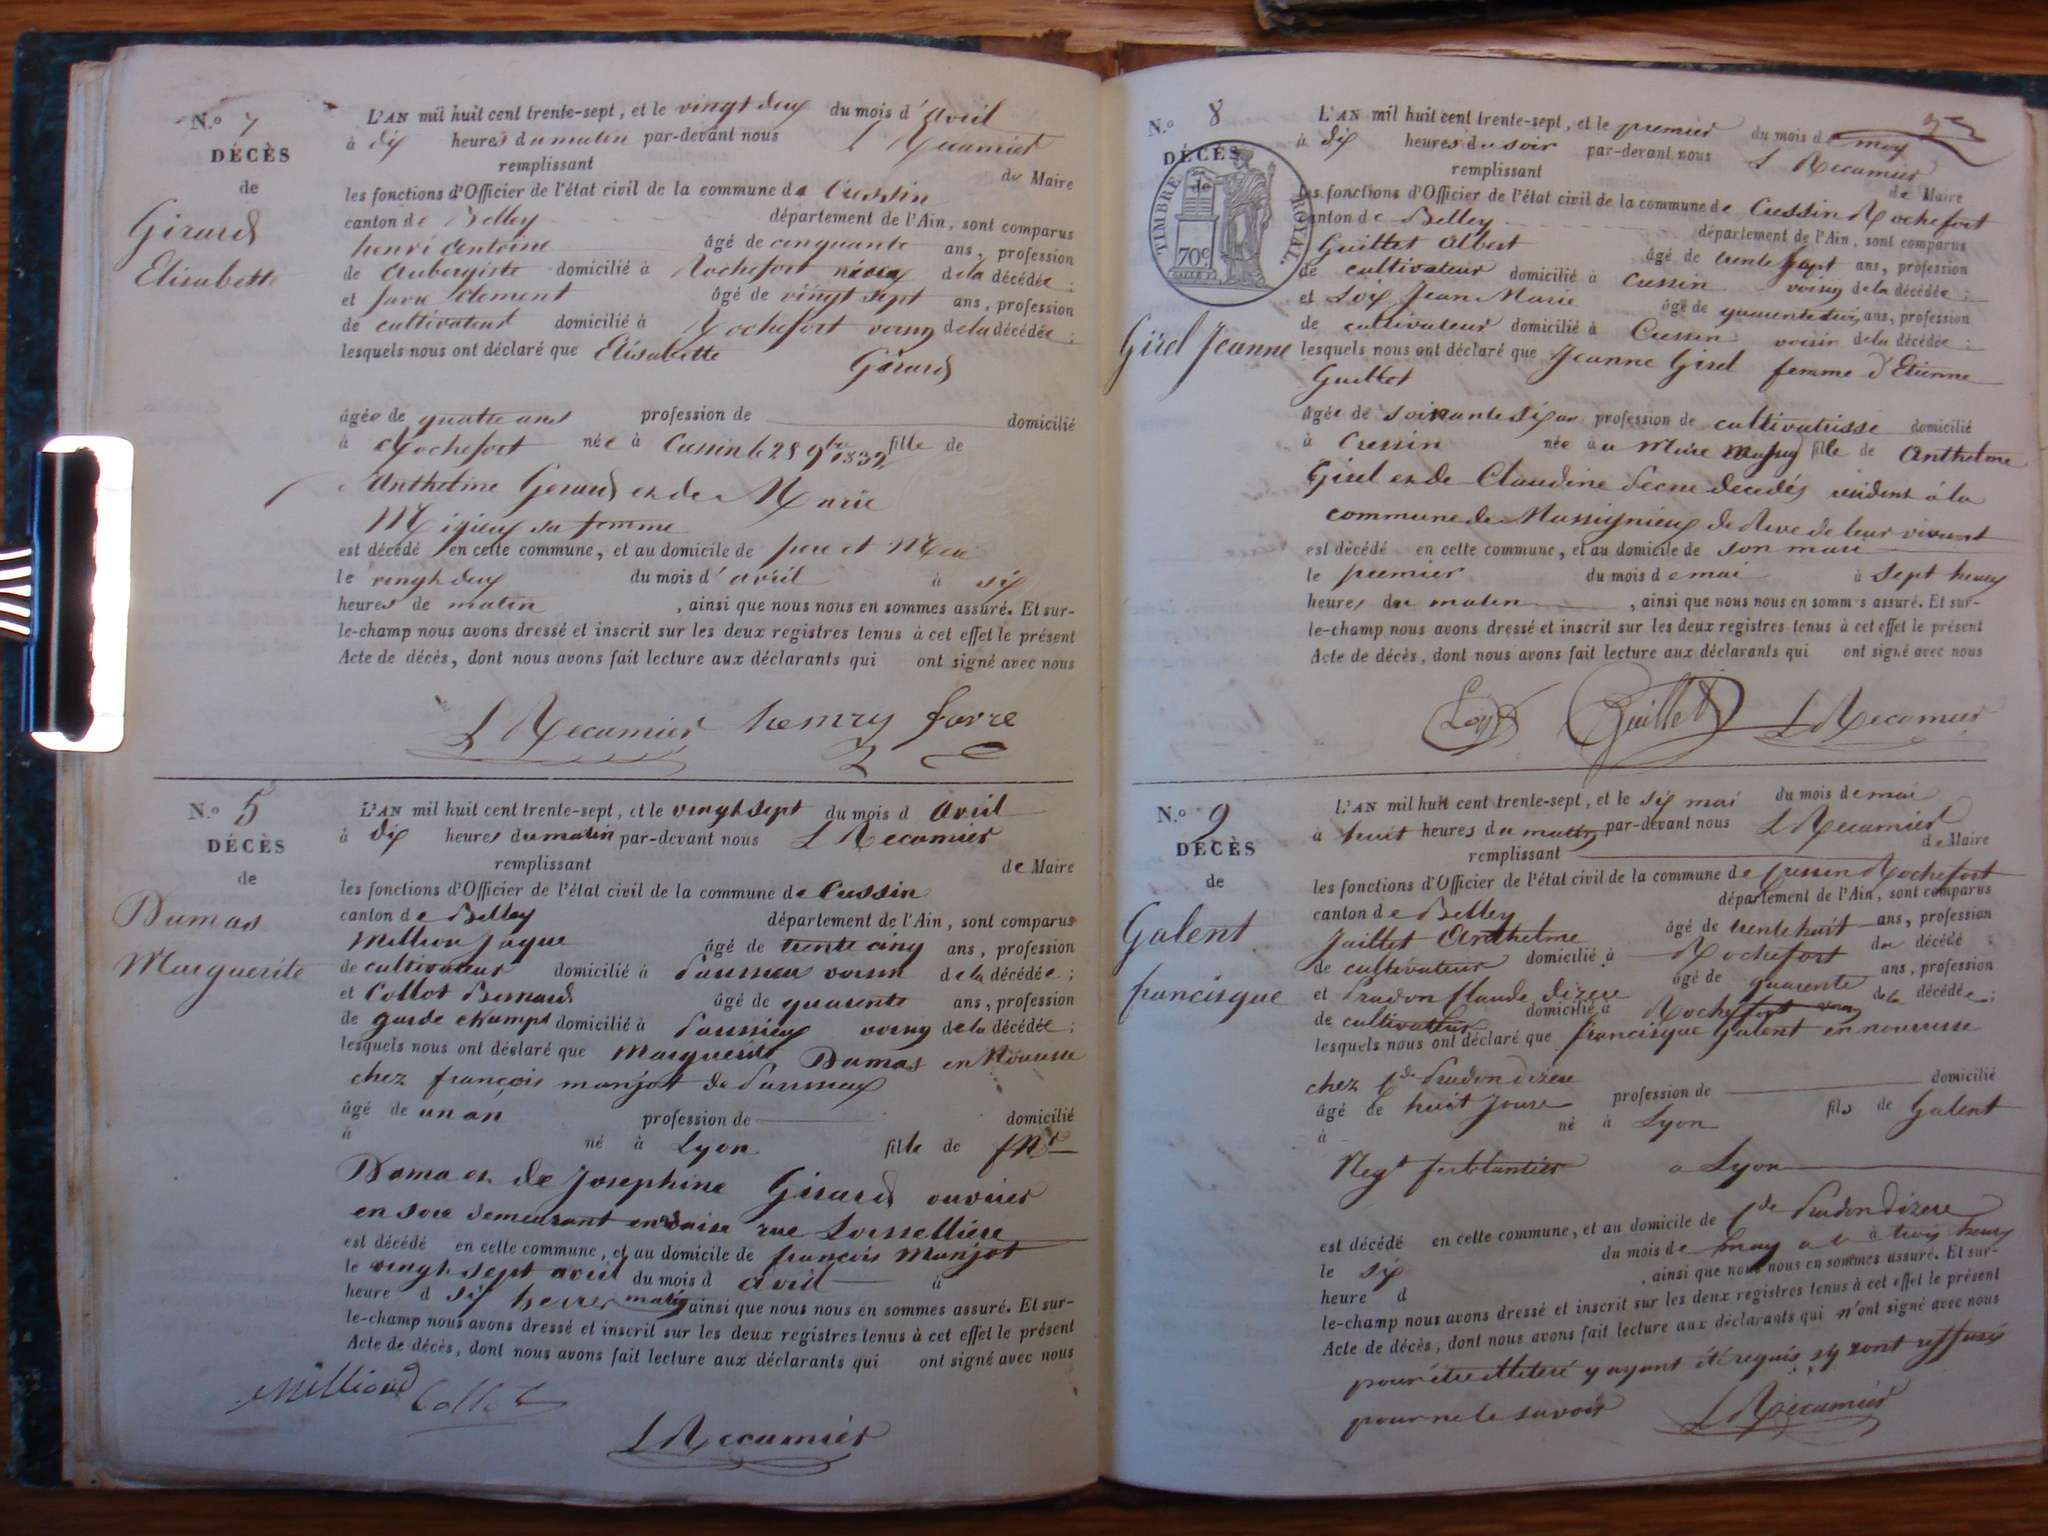 N.o 7
DÉCÈS
de
Girard
Elisabette
L'AN mil huit cent trente-sept, et le vingt deux du mois d'avril
à dix heures du matin par-devant nous L Recamier
remplissant de Maire
les fonctions d'Officier de l'état civil de la commune de Cressin
canton de Belley département de l'Ain, sont comparus
henri antoine âgé de cinquante ans, profession
de aubergiste domicilié à Rochefort de la décédée;
et favre clement âgé de vingt sept ans, profession
de cultivateur domicilié à Rochefort voisin de la décédée;
lesquels nous ont déclaré que Elisabette Girard
âgée de quatre ans profession de domicilié
à Rochefort née à Cressin le 28 9bre 1832 fille de
Anthelme Gerard et de Marie
sa femme
est décédé en cette commune, et au domicile de pere et Mere
le vingt deux du mois d'avril à six
heures de matin, ainsi que nous nous en sommes assuré. Et sur-
le-champ nous avons dressé et inscrit sur les deux registres tenus à cet effet le présent
Acte de décès, dont nous avons fait lecture aux déclarants qui ont signé avec nous
L Recamier henry favre
N.o 5
DÉCÈS
de
Dumas
Marguerite
L'AN mil huit cent trente-sept, et le vingt sept du mois d avril
à dix heures du matin par-devant nous L Recamier
remplissant de Maire
les fonctions d'Officier de l'état civil de la commune de Cressin
canton de Belley département de l'Ain, sont comparus
Million Jaque âgé de trente cinq ans, profession
de cultivateur domicilié à voisin de la décédée;
et Collot Bernard âgé de quarente ans, profession
de garde champt domicilié à voisin de la décédée;
lesquels nous ont déclaré que Marguerite Dumas en Nourisse
chez françois manjot de
âgé de un an profession de domicilié
à né à Lyon fille de
Dama et de Josephine Girard ouvrier
en soie demeurant en vaise rue
est décédé en cette commune, et au domicile de françois Manjot
le vingt sept avril du mois d avril à
heure d six heures matin ainsi que nous nous en sommes assuré. Et sur-
le-champ nous avons dressé et inscrit sur les deux registres tenus à cet effet le présent
Acte de décès, dont nous avons fait lecture aux déclarants qui ont signé avec nous
Milliond Collot
L Recamier
N.o 8
DÉCÈS
de
TIMBRE ROYAL.
70c
Girel Jeanne
L'AN mil huit cent trente-sept, et le premier du mois de may
à dix heures du soir par-devant nous L Recamier
remplissant de Maire
les fonctions d'Officier de l'état civil de la commune de Cressin Rochefort
canton de Belley département de l'Ain, sont comparus
Guillet Albert âgé de trente sept ans, profession
de cultivateur domicilié à Cressin voisin de la décédée;
et Loix Jean Marie âgé de ans, profession
de cultivateur domicilié à Cressin voisin de la décédée;
lesquels nous ont déclaré que Jeanne Girel femme d'Etienne
Guillet
âgée de soixante six an profession de cultivatrisse domicilié
à Cressin née à fille de Anthelme
Girel et de Claudine decedés residents à la
commune de Massignieux de Rive de leur vivant
est décédé en cette commune, et au domicile de son mari
le premier du mois de mai à sept heures
heures du matin, ainsi que nous nous en sommes assuré. Et sur-
le-champ nous avons dressé et inscrit sur les deux registres tenus à cet effet le présent
Acte de décès, dont nous avons fait lecture aux déclarants qui ont signé avec nous
Loyx Guillet L Recamier
N.o 9
DÉCÈS
de
Galent
francisque
L'AN mil huit cent trente-sept, et le six mai du mois de mai
à huit heures du matin par-devant nous L Recamier
remplissant de Maire
les fonctions d'Officier de l'état civil de la commune de Cressin Rochefort
canton de Belley département de l'Ain, sont comparus
Juillet Anthelme âgé de trente huit ans, profession
de cultivateur domicilié à Rochefort du décédé
et Pradon Claude dizere âgé de quarente ans, profession
de cultivateur domicilié à Rochefort voisin de la décédée;
lesquels nous ont déclaré que francisque Galent en nourisse
chez Cde Pradon dizere
âgé de huit jours profession de domicilié
à né à Lyon fils de Galent
Negt ferblantier a Lyon
est décédé en cette commune, et au domicile de Cde Pradon Dizere
le six du mois de may à trois heures
heure d, ainsi que nous nous en sommes assuré. Et sur-
le-champ nous avons dressé et inscrit sur les deux registres tenus à cet effet le présent
Acte de décès, dont nous avons fait lecture aux déclarants qui n'ont signé avec nous
pour être illiteré y ayant été requis s'y sont reffusés
pour ne le savoir L Recamier